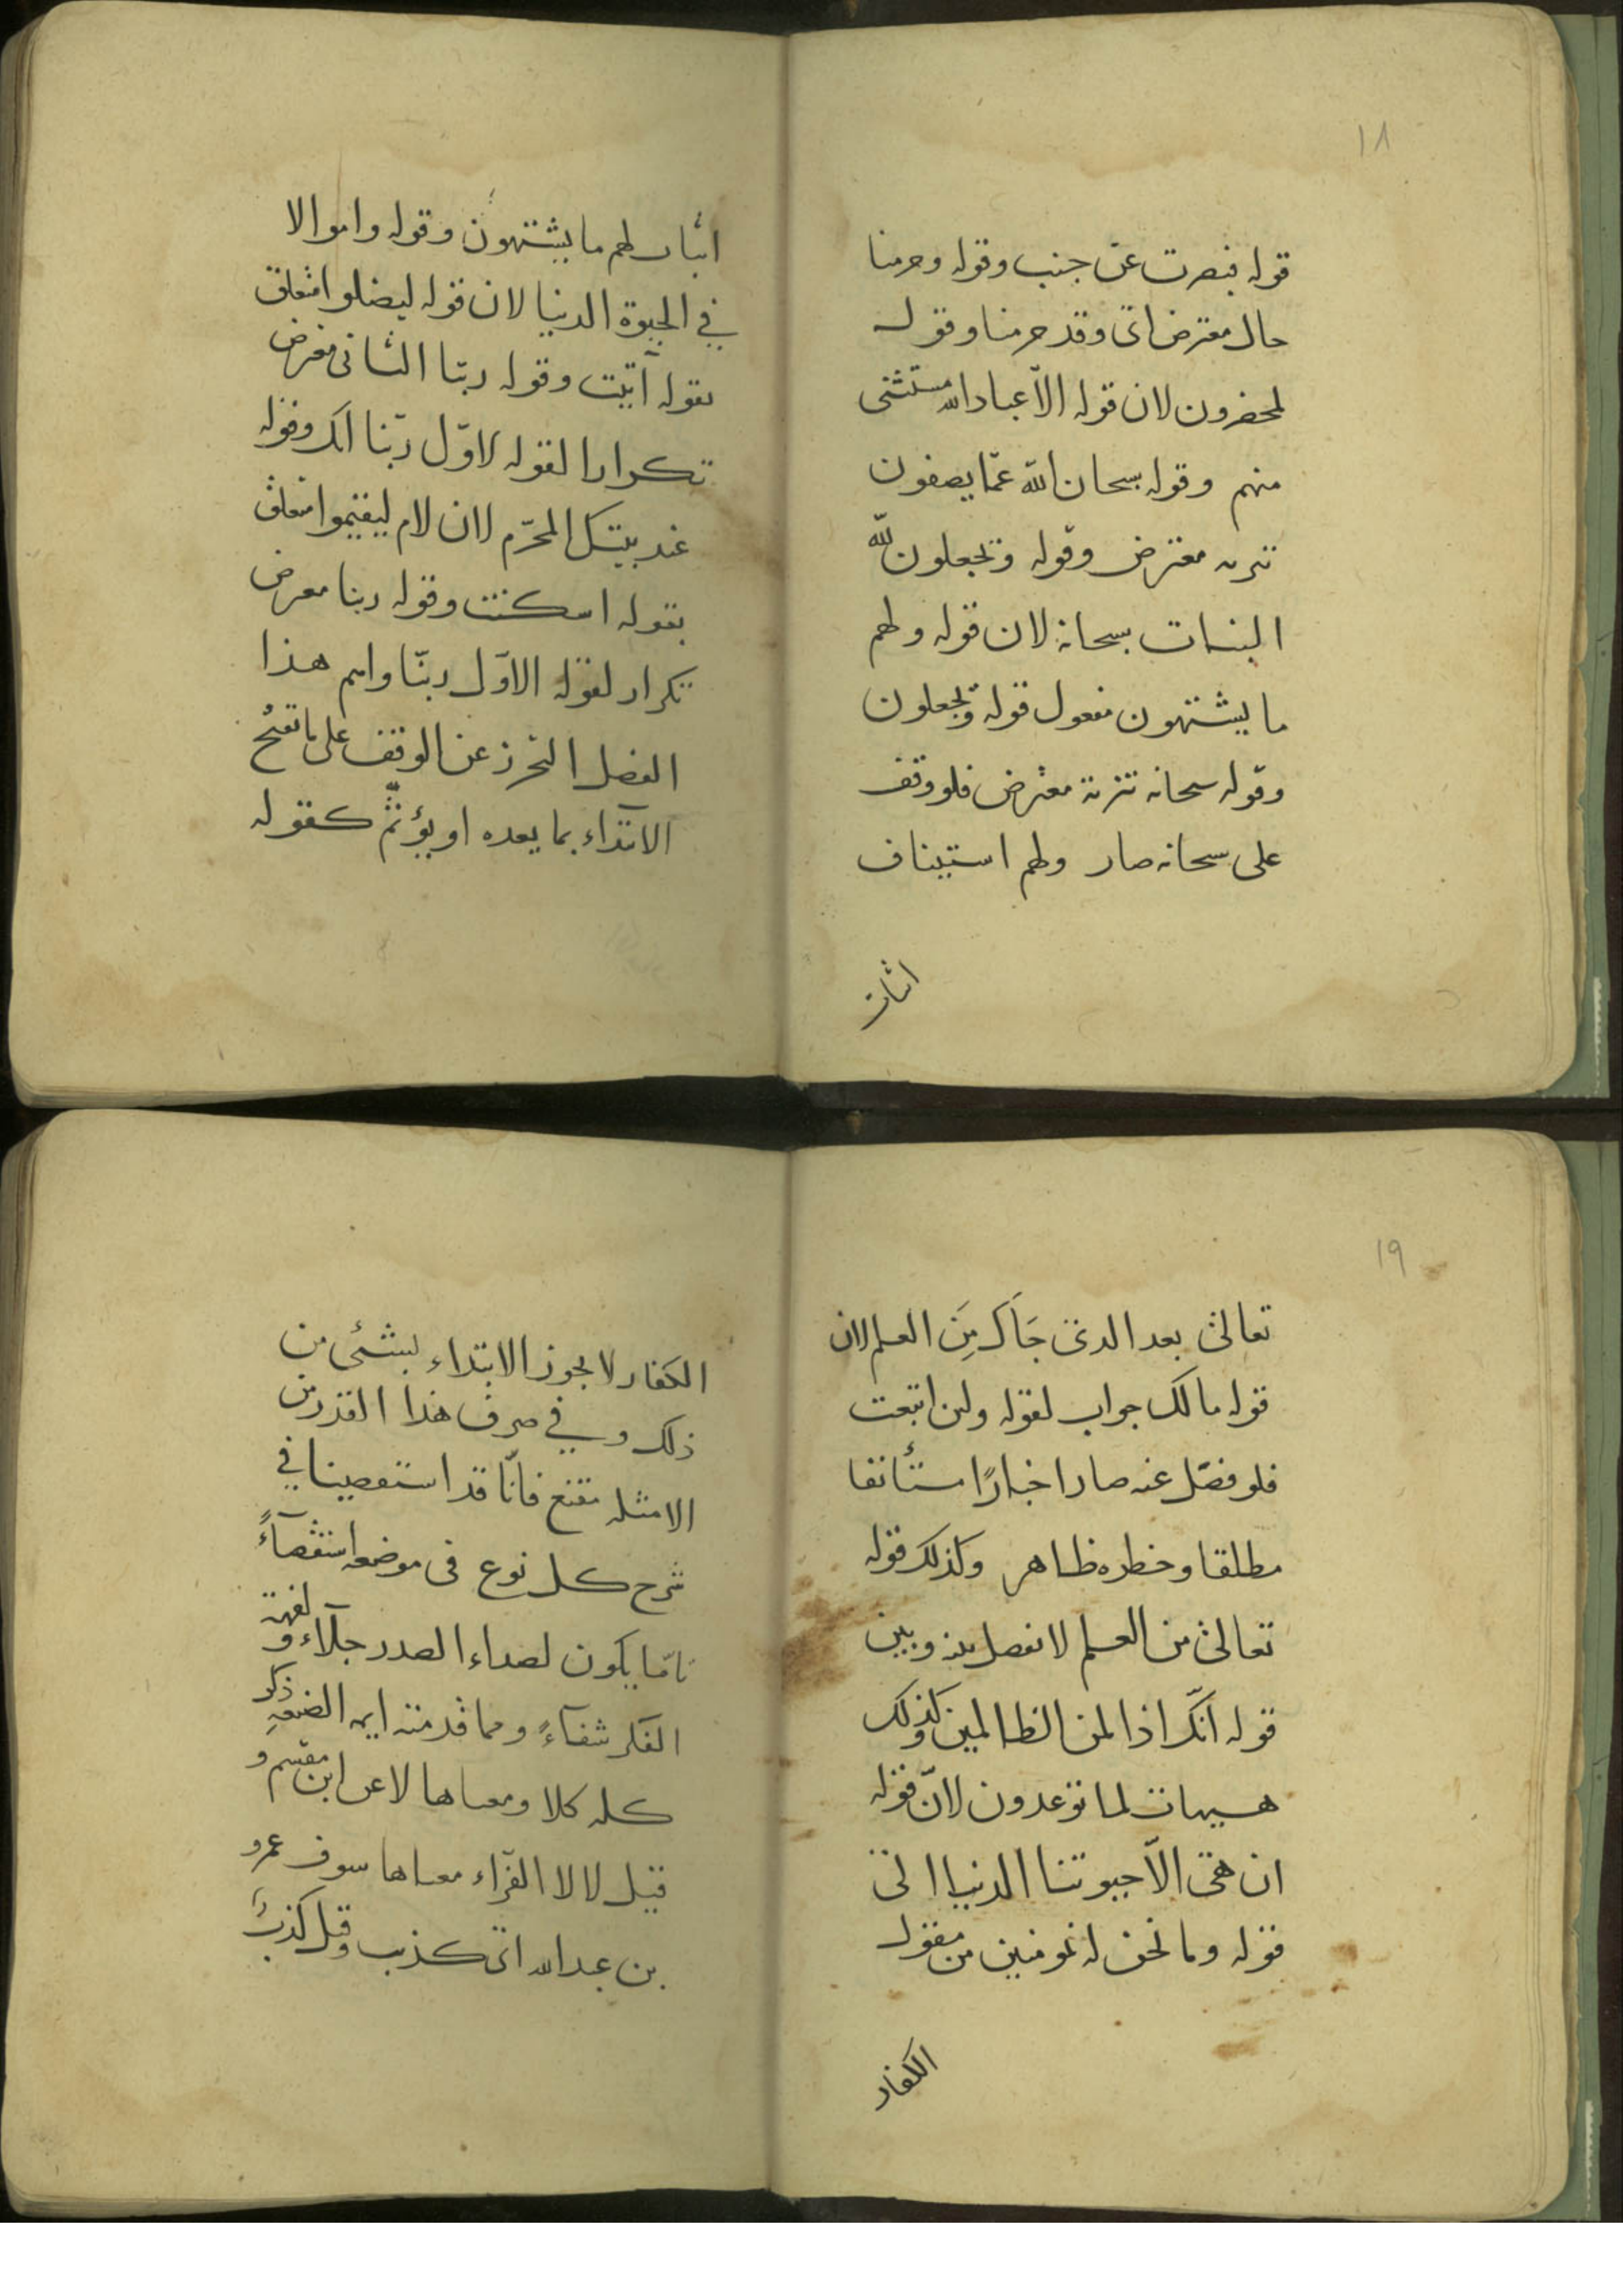 ١٨
قوله فبصرت عن جنب وقوله وحرمنا
حال معترض اى وقد حرمنا وقوله
لمحضرون لان قوله الا عباد الله مستثنى
منهم وقوله سبحان الله عمّا يصفون
تنزيه معترض وقوله وتجعلون لله
البنات سبحانه لان قوله ولهم
ما يشتهون مفعول قوله وتجعلون
وقوله سبحانه تنزيه معترض فلو وقف
على سبحانه صار ولهم استيناف
اثبات
اثبات لهم ما يشتهون وقوله واموالا
في الحيوة الدنيا لان قوله ليضلوا متعلق
بقوله آتيت وقوله ربّنا الثانى معترض
تكرارا لقوله لاوّل ربّنا انك وقوله
عند بيتك المحرّم لان لام ليقيموا متعلق
بقوله اسكنت وقوله ربنا معترض
تكرار لقوله الاوّل ربنّا واہم هذا
الفصل التحرز عن الوقف على ما تقبح
الابتداء بما بعده او يؤثمّ كقوله
١٩
تعالى بعد الذى جَاكَ مِنَ العلم لان
قوله مالك جواب لقوله ولئن اتبعت
فلو فصّل عنه صار اخبارًا مستأنفا
مطلقا وخطره ظاهر وكذلك قوله
تعالى من العلم لا تفصل بينه وبين
قوله انّك اذا لمن الظالمين وكذلك
هيهات لما توعدون لانّ قوله
ان هى الاّ حيوتنا الدنيا الى
قوله وما نحن له بمومنين من مقول
الكفار
الكفار لا يجوز الابتداء بشئى من
ذلك وفي صرف هذا القدر من
الامثله مقنع فانّا قد استقصينا في
شرح كل نوع فى موضعه استقصآءً
تامّا يكون لصداء الصدر جلآء ولفهة
الفكر شفآءً ومما قدمته ايمه الصنعةِ ذكر
كله كلا ومعناها لا عن ابن مقسم و
قيل لا لا الفرّاء معناها سوف عمرو
بن عبد الله اى كذب وقيل كذبتَ